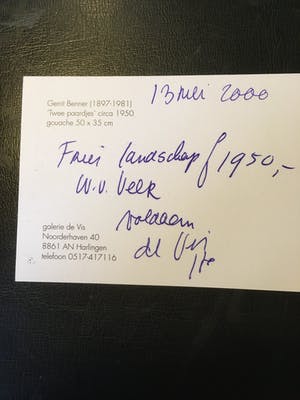 Gerrit Benner (1897-1981)
'Twee paardjes' circa 1950
gouache 50 x 35 cm
13 mei 2000
Fries landschap ƒ 1950,-
W.v. Veer
voldaan
de Vis
galerie de Vis
Noorderhaven 40
8861 AN Harlingen
telefoon 0517-417116